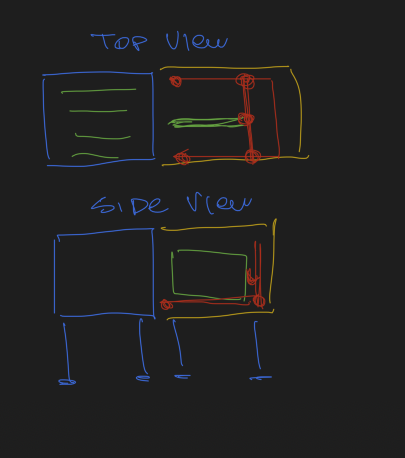 Top View
Side View